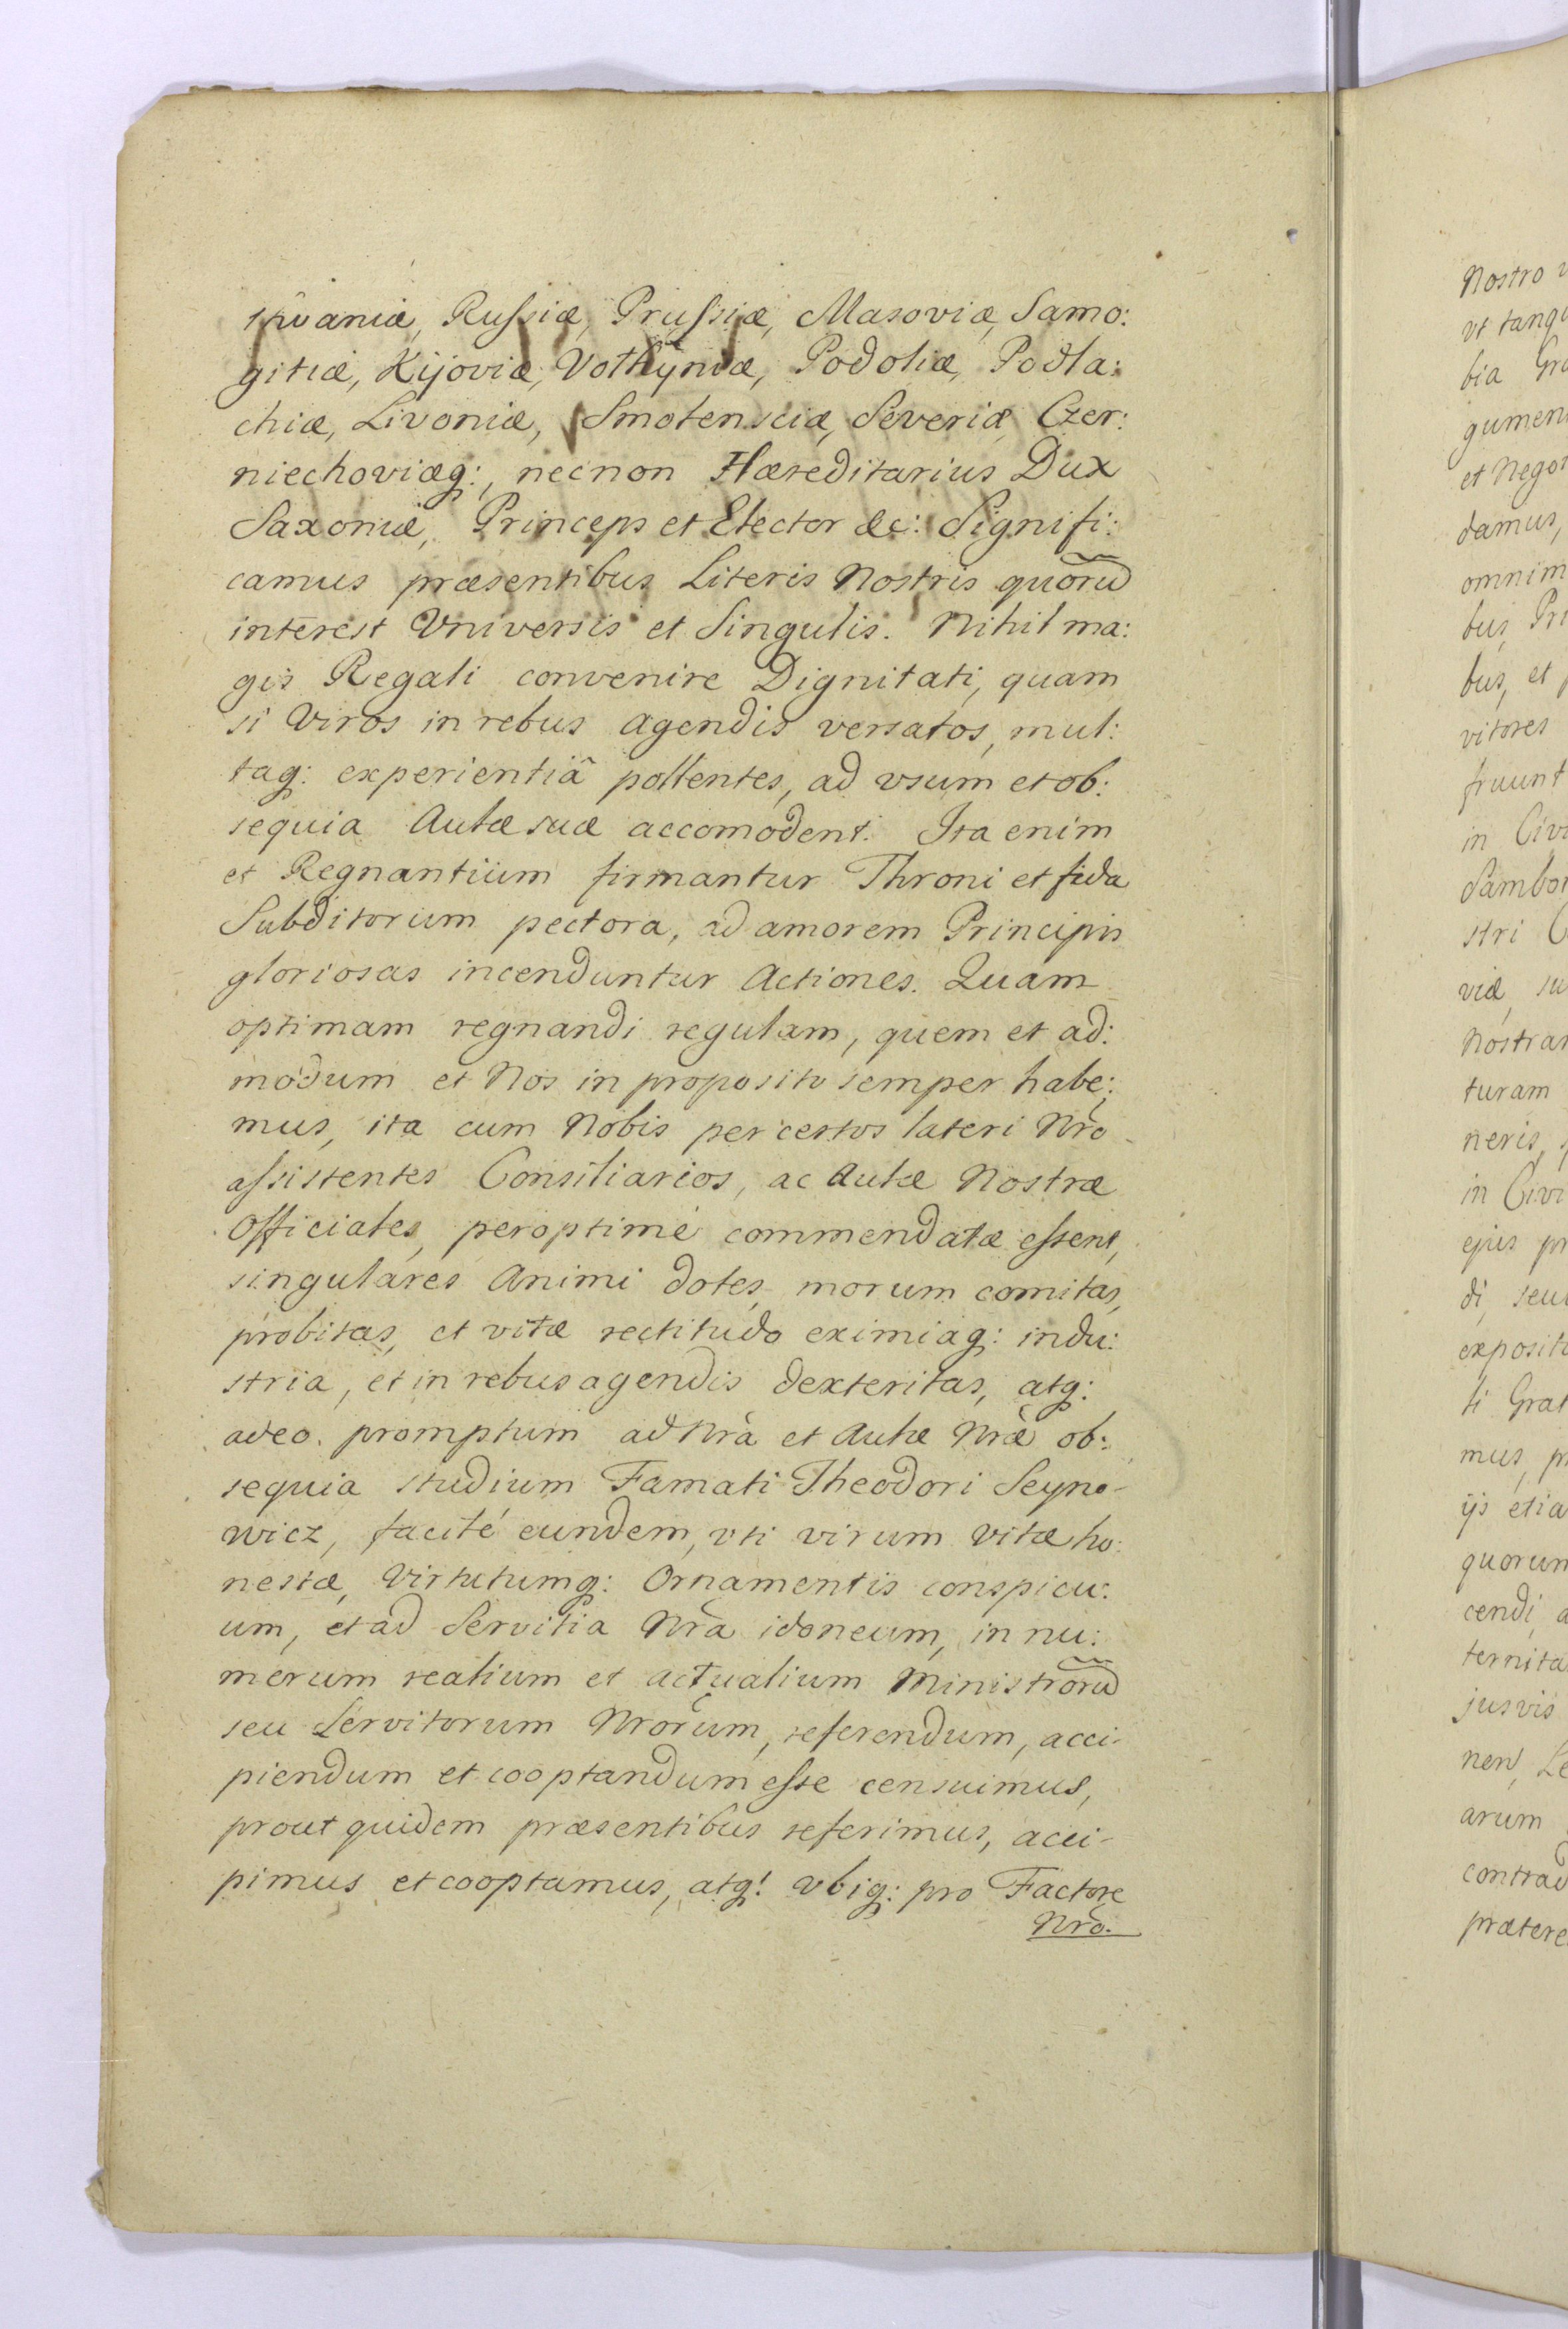 thvaniæ, Russiæ, Prussiæ, Masoviæ, Samo:
gitiæ, Kijoviæ, Volhyniæ, Podoliæ, Podla:
chiæ, Livoniæ, Smolensciæ, Severiæ Czer:
niechoviæq:, necnon Hæreditarius Dux
Saxoniæ, Princeps et Elector &c: Signifi:
camus præsentibus Literis Nostris quorũ
interest Vniversis et Singulis. Nihil ma:
gis Regali convenire Dignitati, quam
si Viros in rebus agendis versatos, mul:
taq: experientiâ pollentes, ad vsum et ob:
sequia Aulæ suæ accomodent. Ita enim
et Regnantium firmantur Throni et fida
Subditorum pectora, ad amorem Principis
gloriosas incenduntur Actiones. Quam
optimam regnandi regulam, quem et ad:
modum et Nos in proposito semper habe:
mus, ita cum Nobis per certos lateri Nrõ
assistentes Consiliarios, ac Aulæ Nostræ
Officiales, peroptimé commendatæ essent,
singulares Animi dotes, morum comitas,
probitas, et vitæ rectitudo eximiaq: indu:
stria, et in rebus agendis dexteritas, atq:
adeo promptum ad Nrã et Aulæ Nræ̃ ob:
sequia studium Famati Theodori Seyno-
wicz, facilé eundem, vti virum vitæ ho:
nestæ, Virtutumq: Ornamentis conspicu:
um, et ad Servitia Nrã idoneum, in nu:
merum realium et actualium Ministrorũ
seu Servitorum Nrõrum, referendum, acci-
piendum et cooptandum esse censuimus,
prout quidem præsentibus referimus, acci-
pimus et cooptamus, atq: vbiq: pro Factore
Nrõ.
Nostro
vt tanq
bia Gr
gumen
et Nego
damus,
omnim
bus Pri
bus, et
vitores
fruunt
in Civi
Sambor
stri C
viæ, su
Nostra
turam
neris,
in Civi
ejus pr
di, seu
exposit
li Grat
mus, p
ijs etia
quorum
cendi, a
ternita
jusvis
nen, Le
arum
contrad
prætere